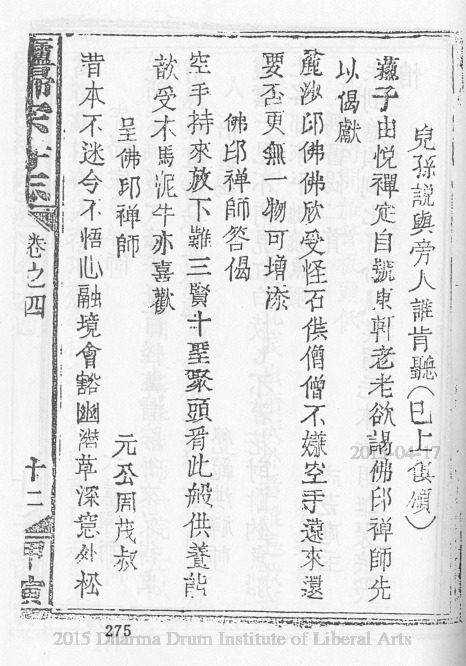 兒孫說與旁人誰肯聽(已上偈頌)
蘇子由悅禪定自號東軒老老欲謁佛印禪師先
以偈獻
麄沙印佛佛欣受怪石供僧僧不嫌空手遠來還
要否更無一物可增添
佛印禪師答偈
空手持來放下難三賢十聖聚頭看此般供養能
歆受木馬泥牛亦喜歡
呈佛印禪師
元公周茂叔
昔本不迷今不悟心融境會豁幽潛草深窓外松
廬歸宗十志
卷之四
十二
甲寅
04-17
275
2015 Dharma Drum Institute of Liberal Arts